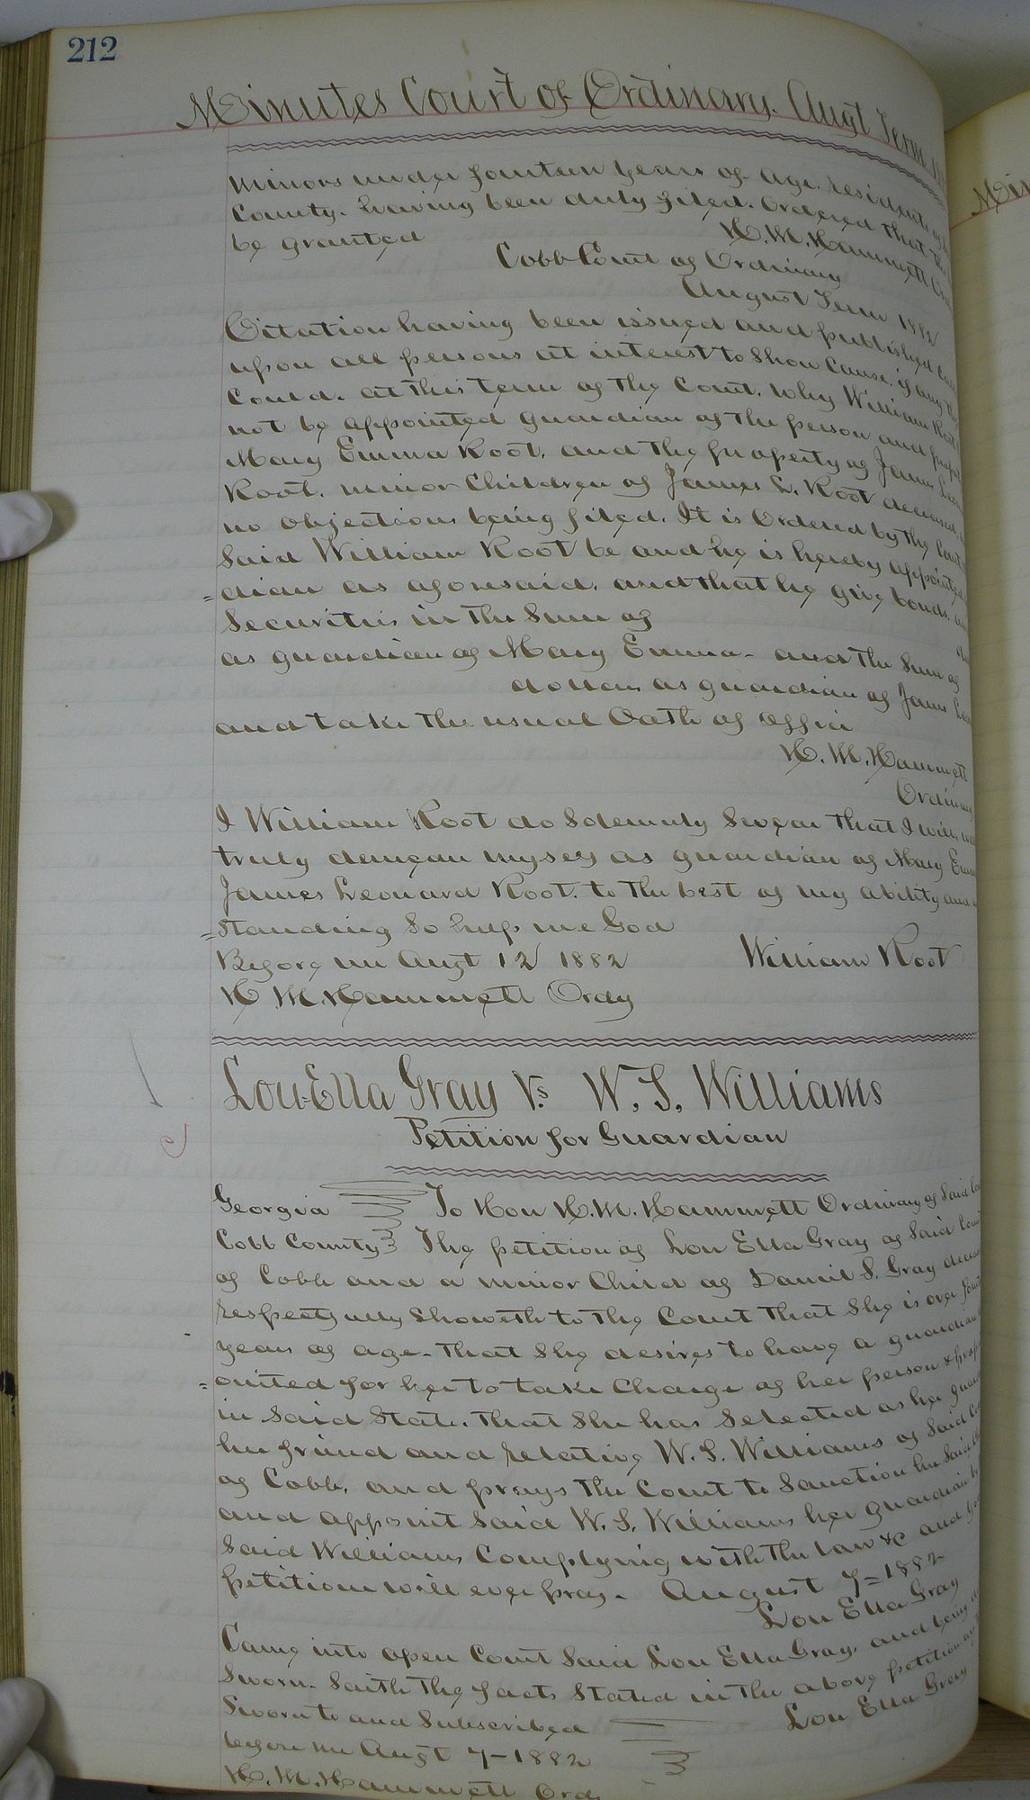 212
Minutes Court of Ordinary. Augt Term
Minors under fourteen years of age. residents of
County. having been duly filed. Ordered that the
be granted
H. M. Hammett
Cobb Court of Ordinary
August Term 1882
Citation having been issued and published
upon all persons at interest to Show Cause, if any they
Could. at this term of the Court. Why William Root
not be appointed guardian of the person and
Mary Emma Root. and the property of James
Root. minor Children of James L. Root deceased,
no objections being filed. It is Ordered by the Court
Said William Root be and he is hereby appointed
=dian as aforesaid. and that he give bond.
Securities in the Sum of
as guardian of Mary Emma- and the Sum of
dollars as guardian of James
and take the usual Oath of office
H. M. Hammett
Ordinary
I William Root do Solemnly Swear that I will
truly demean myself as guardian of Mary
James Leonard Root. to the best of my ability and
=standing So help me God
Before me Augt 12 1882 William Root
H M. Hammett Ordy
Lou-Ella Gray Vs. W. S. Williams
Petition for Guardian
Georgia To Hon H. M. Hammett Ordinary of Said
Cobb County The petition of Lou Ella Gray of Said
of Cobb and a minor Child of Daniel S. Gray
respectfully Showeth to the Court that She is over
years of age- that She desires to have a guardian
=ointed for her to take Charge of her person &
in Said State. that She has Selected as her
her friend and relative W. S. Williams of Said
of Cobb, and prays the Court to Sanction her Said
and appoint Said W. S. Williams her guardian
Said Williams Complying with the law &c and
petition will ever pray- August 7=1882
Lou Ella Gray
Came into open Court Said Lou Ella Gray, and being
Sworn- Saith the facts Stated in the above petition
Sworn to and Subscribed Lou Ella Gray
before me Augt 7-1882
H. M. Hammett Ordy